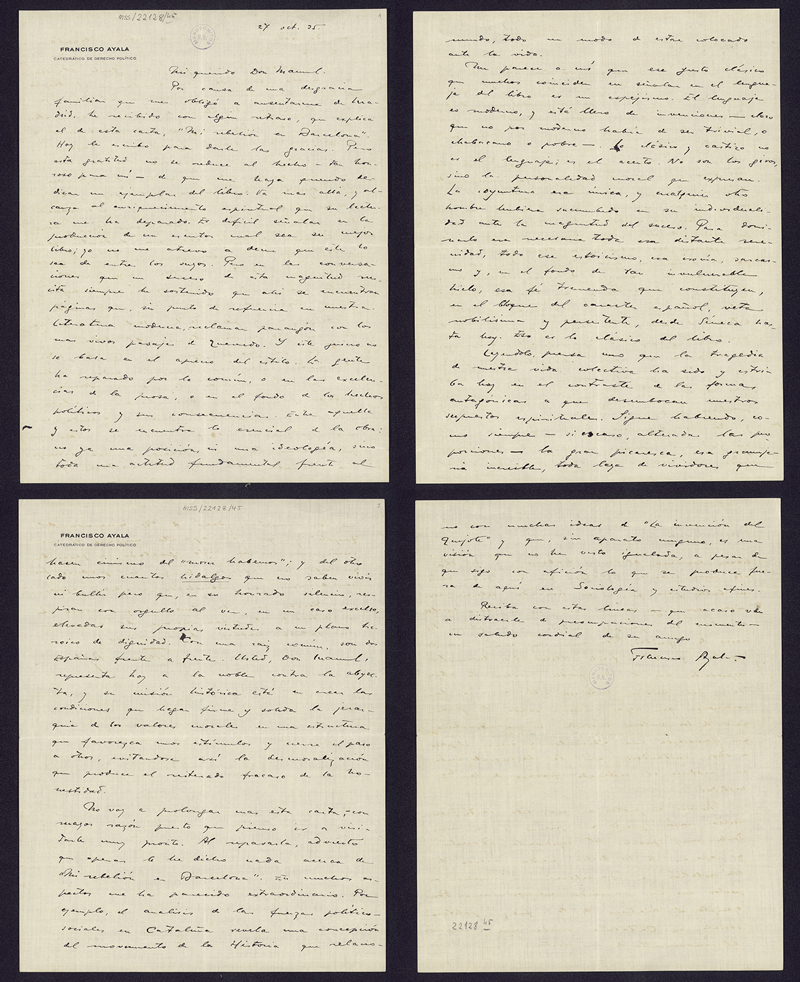 MSS/22128/45
27 oct. 35.
FRANCISCO AYALA
CATEDRÁTICO DE DERECHO POLÍTICO
Mi querido Don Manuel:
Por causa de una desgracia
familiar que me obligó a ausentarme de Ma-
drid, he recibido con algún retraso, que explica
el de esta carta, "Mi rebelión en Barcelona".
Hoy le escribo para darle las gracias. Pero
esta gratitud no se reduce al hecho —tan hon-
roso para mí— de que me haya querido de-
dicar un ejemplar del libro: va más allá, y al-
canza al enriquecimiento espiritual que su lectu-
ra me ha deparado. Es difícil señalar en la
producción de un escritor cual sea su mejor
libro; yo no me atrevo a decir que éste lo
sea de entre los suyos. Pero en las conversa-
ciones que un suceso de esta magnitud sus-
cita siempre he sostenido que ahí se encuentran
páginas que, sin punto de referencia en nuestra
literatura moderna, reclaman parangón con los
mas vivos pasajes de Quevedo. Y este juicio no
se basa en el aprecio del estilo. La gente
ha reparado por lo común, o en las excelen-
cias de la prosa, o en el fondo de los hechos
políticos y sus consecuencias. Entre aquella
y estos se encuentra lo esencial de la obra:
no ya una posición, ni una ideología, sino
toda una actitud fundamental frente al
mundo, todo un modo de estar colocado
ante la vida.
Me parece a mí que ese gusto clásico
que muchos coinciden en señalar en el lengua-
je del libro es un espejismo. El lenguaje
es moderno, y está lleno de invenciones — claro
que no por moderno había de ser trivial, o
chabacano o pobre —. Lo clásico y castizo no
es el lenguaje; es el acento. No son los giros,
sino la personalidad moral que expresan.
La coyuntura era única, y cualquier otro
hombre hubiera sucumbido en su individuali-
dad ante la magnitud del suceso. Para domi-
narlo era necesaria toda esa distante sere-
nidad, todo ese estoicismo, esa ironía, sarcas-
mo y, en el fondo de tan invulnerable
hielo, esa fe tremenda que constituyen,
en el bloque del carácter español, veta
nobilísima y persistente, desde Séneca has-
ta hoy. Eso es lo clásico del libro.
Leyéndolo, piensa uno que la tragedia
de nuestra vida colectiva ha sido y estri-
ba hoy en el contraste de las formas
antagónicas a que desembocan nuestros
supuestos espirituales. Sigue habiendo, co-
mo siempre — si acaso, alteradas las pro
porciones — la gran picaresca, esa granuje-
ría increíble, toda laya de vividores que
MSS/22128/45
FRANCISCO AYALA
CATEDRÁTICO DE DERECHO POLÍTICO
hacen cinismo del "nos habemos"; y del otro
lado unos cuantos hidalgos que no saben vivir
ni bullir pero que, en su honrado silencio, res-
piran con orgullo al ver, en un caso excelso,
elevadas sus propias virtudes a un plano he-
roico de dignidad. Con una raíz común, son dos
Españas frente a frente. Usted, Don Manuel,
representa hoy a la noble contra la abyec-
ta, y su misión histórica está en crear las
condiciones que hagan firme y sólida la jerar-
quía de los valores morales en una estructura
que favorezca unos estímulos y cierre el paso
a otros, evitándose así la desmoralización
que produce el reiterado fracaso de la ho-
nestidad.
No voy a prolongar mas esta carta, con
mayor razón puesto que pienso ir a visi-
tarle muy pronto. Al repasarla, advierto
que apenas le he dicho nada acerca de
"Mi rebelión en Barcelona". En muchos as-
pectos me ha parecido extraordinario. Por
ejemplo, el análisis de las fuerzas político-
sociales en Cataluña revela una concepción
del movimiento de la Historia que relacio-
no con muchas ideas de "La invención del
Quijote" y que, sin aparato ninguno, es una
visión que no he visto igualada, a pesar de
que sigo con afición lo que se produce fue-
ra de aquí en Sociología y estudios afines.
Reciba con estas líneas — que acaso van
a distraerle de preocupaciones del momento —
un saludo cordial de su amigo
Francisco Ayala
22128 45